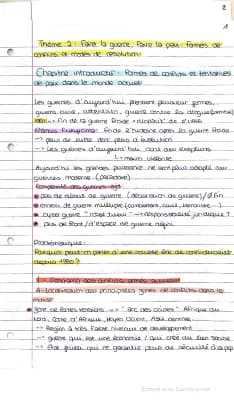 2
1
Thème 2 : Faire la guerre, Faire la paix : formes de
conflits et modes de résolution
Chapitre introductif : Formes de conflits et tentatives
de paix dans le monde actuel
Les guerres d'aujourd'hui prennent plusieurs formes,
guerre civile, attentats, guerre contre la drogue
1991 → Fin de la guerre froide + de l'URSS
Francis Fukuyama : Fin de l'histoire après la guerre froide
→ plus de lutte donc plus d'évolution
→ Les guerres d'aujourd'hui sont des exceptions
↳ moins violente
Aujourd'hui les grandes puissances ne sont plus adapté aux
guerres moderne (paradoxe)
Complexité des guerres est
pas de début de guerre (déclaration de guerre) / Ø fin
ennemis de guerre multiple (
cyber guerre "robot tueur" → responsabilité juridique ?
pas de front / d'espace de guerre défini
Problématique :
Pourquoi peut-on parler d'une nouvelle ère de conflictualité
depuis 1990 ?
I - Panorama des conflits armés actuels
A - Localisation des principales zones de conflits dans le
monde
Zone de fortes tensions → "arc des crises" Afrique du
Nord, Corne d'Afrique, Moyen Orient, Asie centrale
→ Région à très faible niveaux de développement
→ guerre qui est une économie / qui crée du lien social
→ état faible qui ne garantie pas la sécurité à sa pop
Scanned with CamScanner